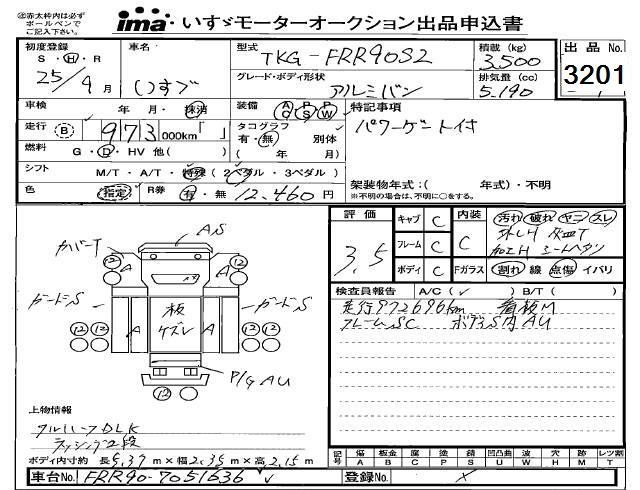 ㊟赤太枠内は必ず
ボールペンで
ご記入下さい。
ima いすゞモーターオークション出品申込書
初度登録 S・H・R 25年9月
車名 いすゞ
型式 TKG-FRR90S2
積載(kg) 3,500
出品No. 3201
グレード・ボディ形状 アルミバン
排気量(cc) 5,190
車検 年 月・抹消
装備 AC PS PW
特記事項
走行 B 973,000km「 」
タコグラフ 有・無 別体
パワーゲート付
燃料 G・D・HV 他( )
( 年 月)
シフト M/T・A/T・特殊(2ペダル・3ペダル)
架装物年式:( 年式)・不明
※不明の場合は、不明に○をする。
色 指定
R券 有・無 12,460円
評価 3.5
キャブ C
内装 C
汚れ 破れ ヤニ スレ
フレーム C
加工H シートヘタリ
ボディ C
Fガラス 割れ 線 点傷 イバリ
検査員報告 A/C(レ) B/T( )
走行972696km 看板M
フレームSC ボディS内AU
カバーT
AS
ガードS
ガードS
板
ケズレ
A A A A
12 12 12 12 12 12 12
P/G AU
上物情報
アルハーフDLK
ラッシング2段
ボディ内寸約 長5.37m×幅2.35m×高2.15m
記号 傷A 板金B 腐C 塗P 錆S 凹凸曲U 波W 穴H 跡M レツ割T
車台No. FRR90-7051636
登録No. ×